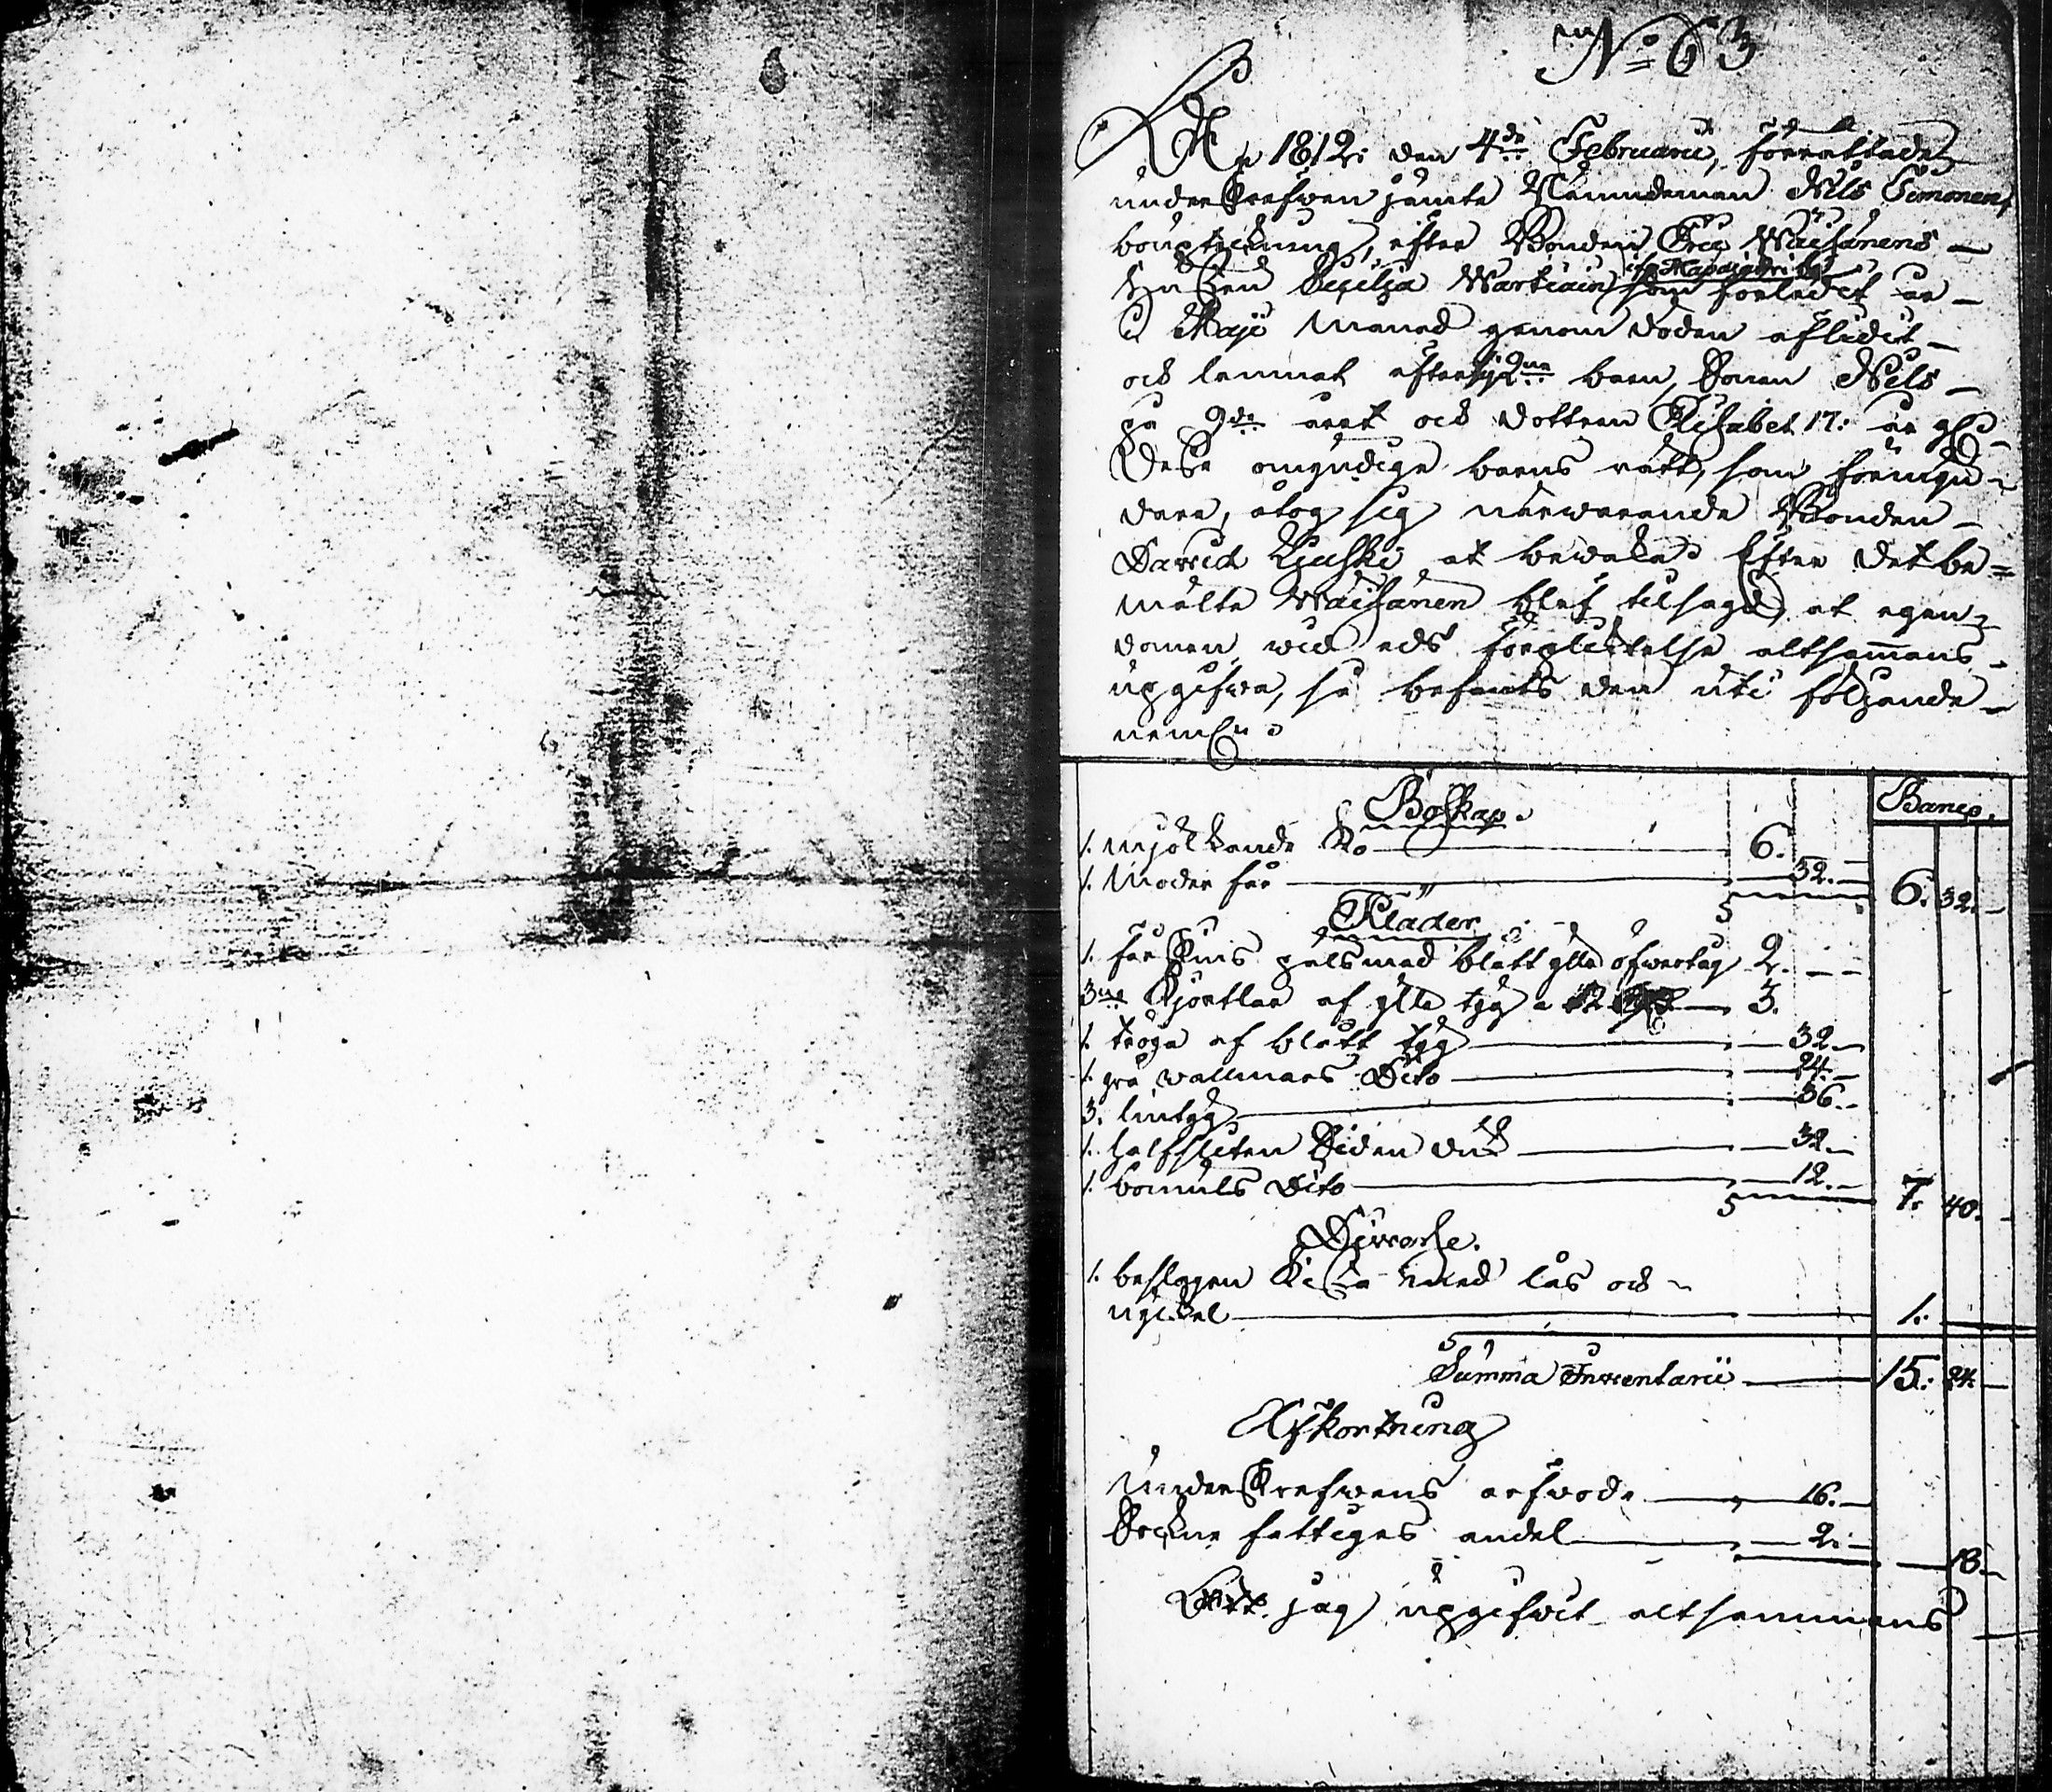 No 63
År 1812: den 4de Februarii, förrättades
underskrefwen jämte Nämndeman Nils Simonen,
bouptekning, efter Bonden Eric Wäisänens
Hustru Cecilja Wartiain som förledit år
i Maji månad genom döden aflidit
och lemnat efter sig 2ne barn, Sonen Nils
på 9de året och dottren Elisabet 17: år gl.
Desse omyndige barns rätt, som förmyn-
dare, åtog sig närwarande Bonden
David Kjuski at bewaka. Efter det be-
mälte Wäisänen blef tilsagd, at egen-
domen wid eds förpliktelse altsammans
upgifwa, så befants den uti följande
neml:n
Banco.
Boskap.
1. mjölkande Ko 6.
1. Moder får 32. 6. 32.
Kläder
1. fårskins päls med blått ylle öfwertyg 2.
3ne Kjortlar af ylle tyg a 3.
1. tröja af blått tyg 32.
1. grå wallmars Dito 24.
3. lintyg 36.
1. halfsliten Siden duk 32.
1. bomuls Dito 12. 7. 40.
Diverse.
1. beslagen Kista med lås och
nyckel 1.
Summa Inventarii 15. 24.
Afkortning
Underskrefwens arfwode 16.
Sockne fattiges andel 2. 18.
Rätt jag upgifwit altsammans